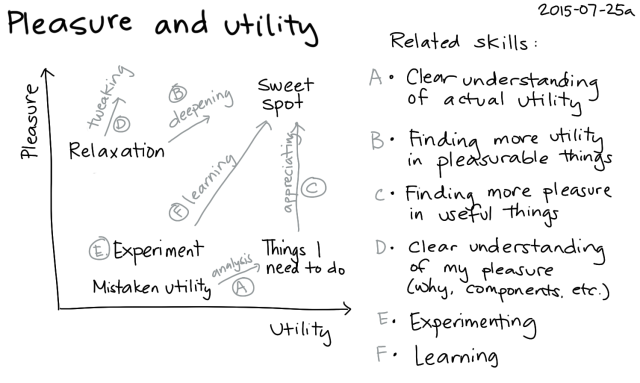 Pleasure and utility
2015-07-25a
Pleasure
tweaking
D
B
deepening
Sweet
spot
Relaxation
F learning
appreciating
C
E Experiment
Mistaken utility
analysis
A
Things I
need to do
Utility
Related skills:
A. Clear understanding
of actual utility
B. Finding more utility
in pleasurable things
C. Finding more pleasure
in useful things
D. Clear understanding
of my pleasure
(why, components, etc.)
E. Experimenting
F. Learning